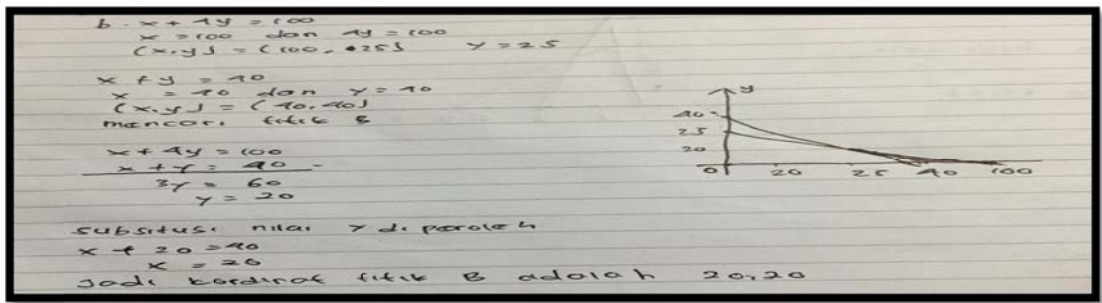 b. x + 4y = 100
x = 100 dan 4y = 100
(x,y) = (100, 25) y = 25
x + y = 40
x = 40 dan y = 40
(x,y) = (40,40)
mencari titik B
x + 4y = 100
x + y = 40 -
3y = 60
y = 20
subsitusi nilai y di peroleh
x + 20 = 40
x = 20
Jadi kordinat titik B adalah 20,20
y
40
25
20
0 20 25 40 100